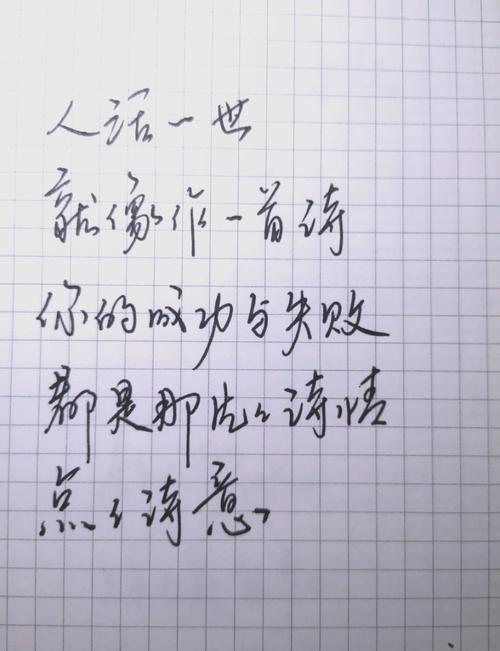 人话一世
就像作一首诗
你的成功与失败
都是那片片诗情
点点诗意